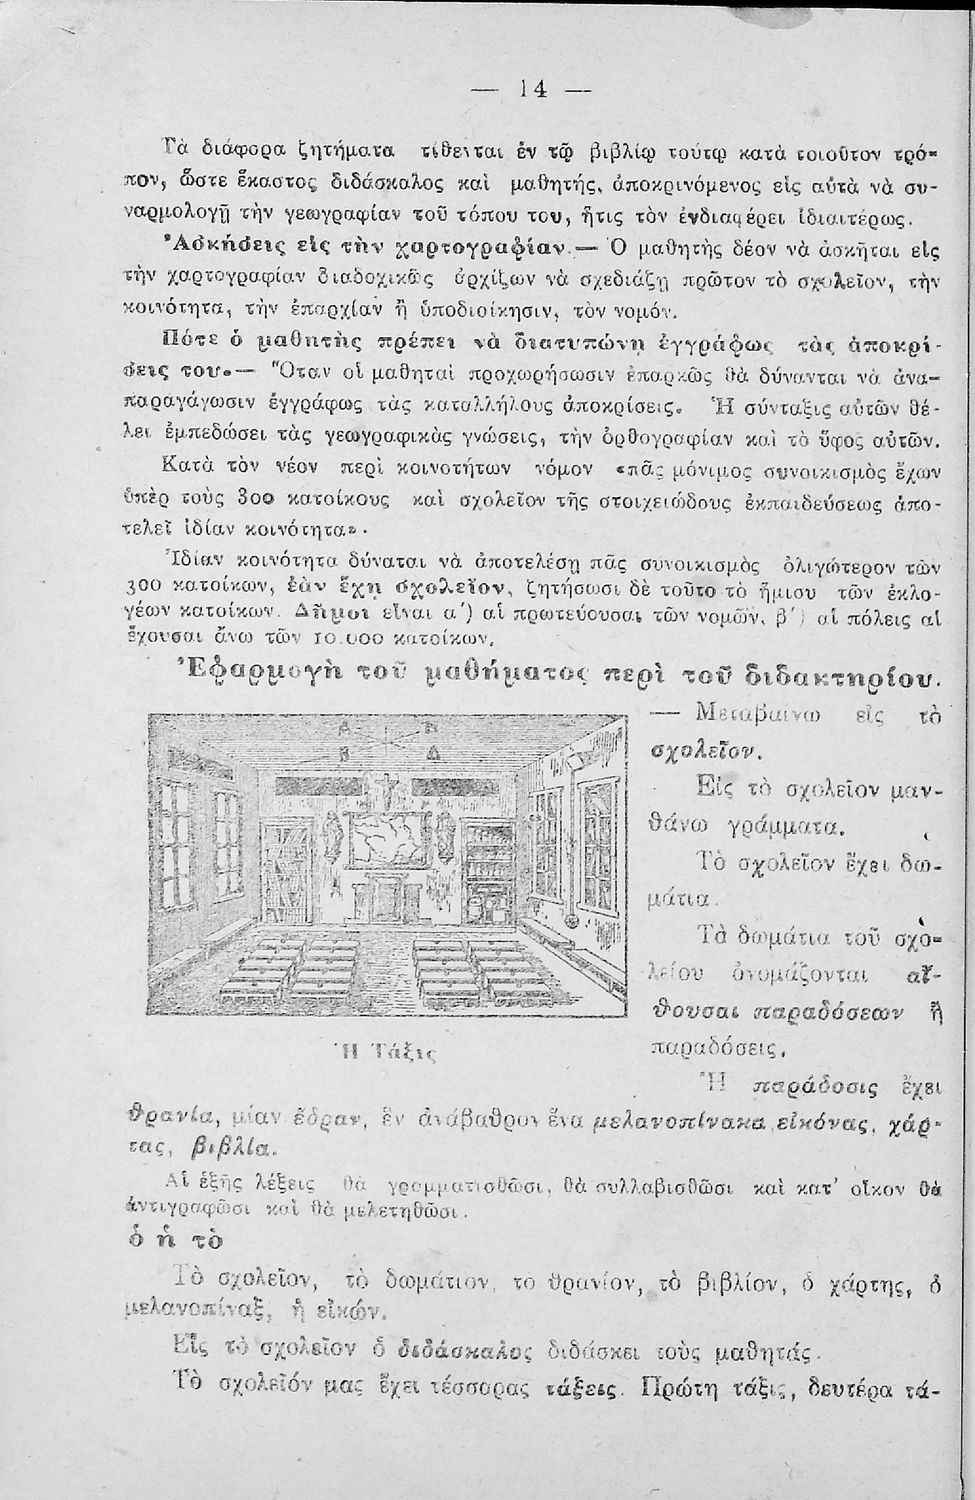 — 14 —
Τὰ διάφορα ζητήματα τίθενται ἐν τῷ βιβλίῳ τούτῳ κατὰ τοιοῦτον τρό-
πον, ὥστε ἕκαστος διδάσκαλος καὶ μαθητής, ἀποκρινόμενος εἰς αὐτὰ νὰ συ-
ναρμολογῇ τὴν γεωγραφίαν τοῦ τόπου του, ἥτις τὸν ἐνδιαφέρει ἰδιαιτέρως.
Ἀσκήσεις εἰς τὴν χαρτογραφίαν.— Ὁ μαθητὴς δέον νὰ ἀσκῆται εἰς
τὴν χαρτογραφίαν διαδοχικῶς ἀρχίζων νὰ σχεδιάζῃ πρῶτον τὸ σχολεῖον, τὴν
κοινότητα, τὴν ἐπαρχίαν ἢ ὑποδιοίκησιν, τὸν νομόν.
Πότε ὁ μαθητὴς πρέπει νὰ διατυπώνῃ ἐγγράφως τὰς ἀποκρί-
σεις του.— Ὅταν οἱ μαθηταὶ προχωρήσωσιν ἐπαρκῶς θὰ δύνανται νὰ ἀνα-
παραγάγωσιν ἐγγράφως τὰς καταλλήλους ἀποκρίσεις. Ἡ σύνταξις αὐτῶν θέ-
λει ἐμπεδώσει τὰς γεωγραφικὰς γνώσεις, τὴν ὀρθογραφίαν καὶ τὸ ὕφος αὐτῶν.
Κατὰ τὸν νέον περὶ κοινοτήτων νόμον «πᾶς μόνιμος συνοικισμὸς ἔχων
ὑπὲρ τοὺς 300 κατοίκους καὶ σχολεῖον τῆς στοιχειώδους ἐκπαιδεύσεως ἀπο-
τελεῖ ἰδίαν κοινότητα».
Ἰδίαν κοινότητα δύναται νὰ ἀποτελέσῃ πᾶς συνοικισμὸς ὀλιγώτερον τῶν
300 κατοίκων, ἐὰν ἔχῃ σχολεῖον, ζητήσωσι δὲ τοῦτο τὸ ἥμισυ τῶν ἐκλο-
γέων κατοίκων. Δῆμοι εἶναι α΄) αἱ πρωτεύουσαι τῶν νομῶν, β΄) αἱ πόλεις αἱ
ἔχουσαι ἄνω τῶν 10.000 κατοίκων.
Ἐφαρμογὴ τοῦ μαθήματος περὶ τοῦ διδακτηρίου.
— Μεταβαίνω εἰς τὸ
σχολεῖον.
Εἰς τὸ σχολεῖον μαν-
θάνω γράμματα.
Τὸ σχολεῖον ἔχει δω-
μάτια.
Τὰ δωμάτια τοῦ σχο-
λείου ὀνομάζονται αἴ-
θουσαι παραδόσεων ἢ
παραδόσεις.
Ἡ παράδοσις ἔχει
Α Β
Β Δ
Ἡ Τάξις
θρανία, μίαν ἕδραν, ἓν ἀνάβαθρον ἕνα μελανοπίνακα, εἰκόνας, χάρ-
τας, βιβλία.
Αἱ ἑξῆς λέξεις θὰ γραμματισθῶσι, θὰ συλλαβισθῶσι καὶ κατ' οἶκον θὰ
ἀντιγραφῶσι καὶ θὰ μελετηθῶσι.
ὁ ἡ τὸ
Τὸ σχολεῖον, τὸ δωμάτιον, τὸ θρανίον, τὸ βιβλίον, ὁ χάρτης, ὁ
μελανοπίναξ, ἡ εἰκών.
Εἰς τὸ σχολεῖον ὁ διδάσκαλος διδάσκει τοὺς μαθητάς.
Τὸ σχολεῖόν μας ἔχει τέσσαρας τάξεις. Πρώτη τάξις, δευτέρα τά-